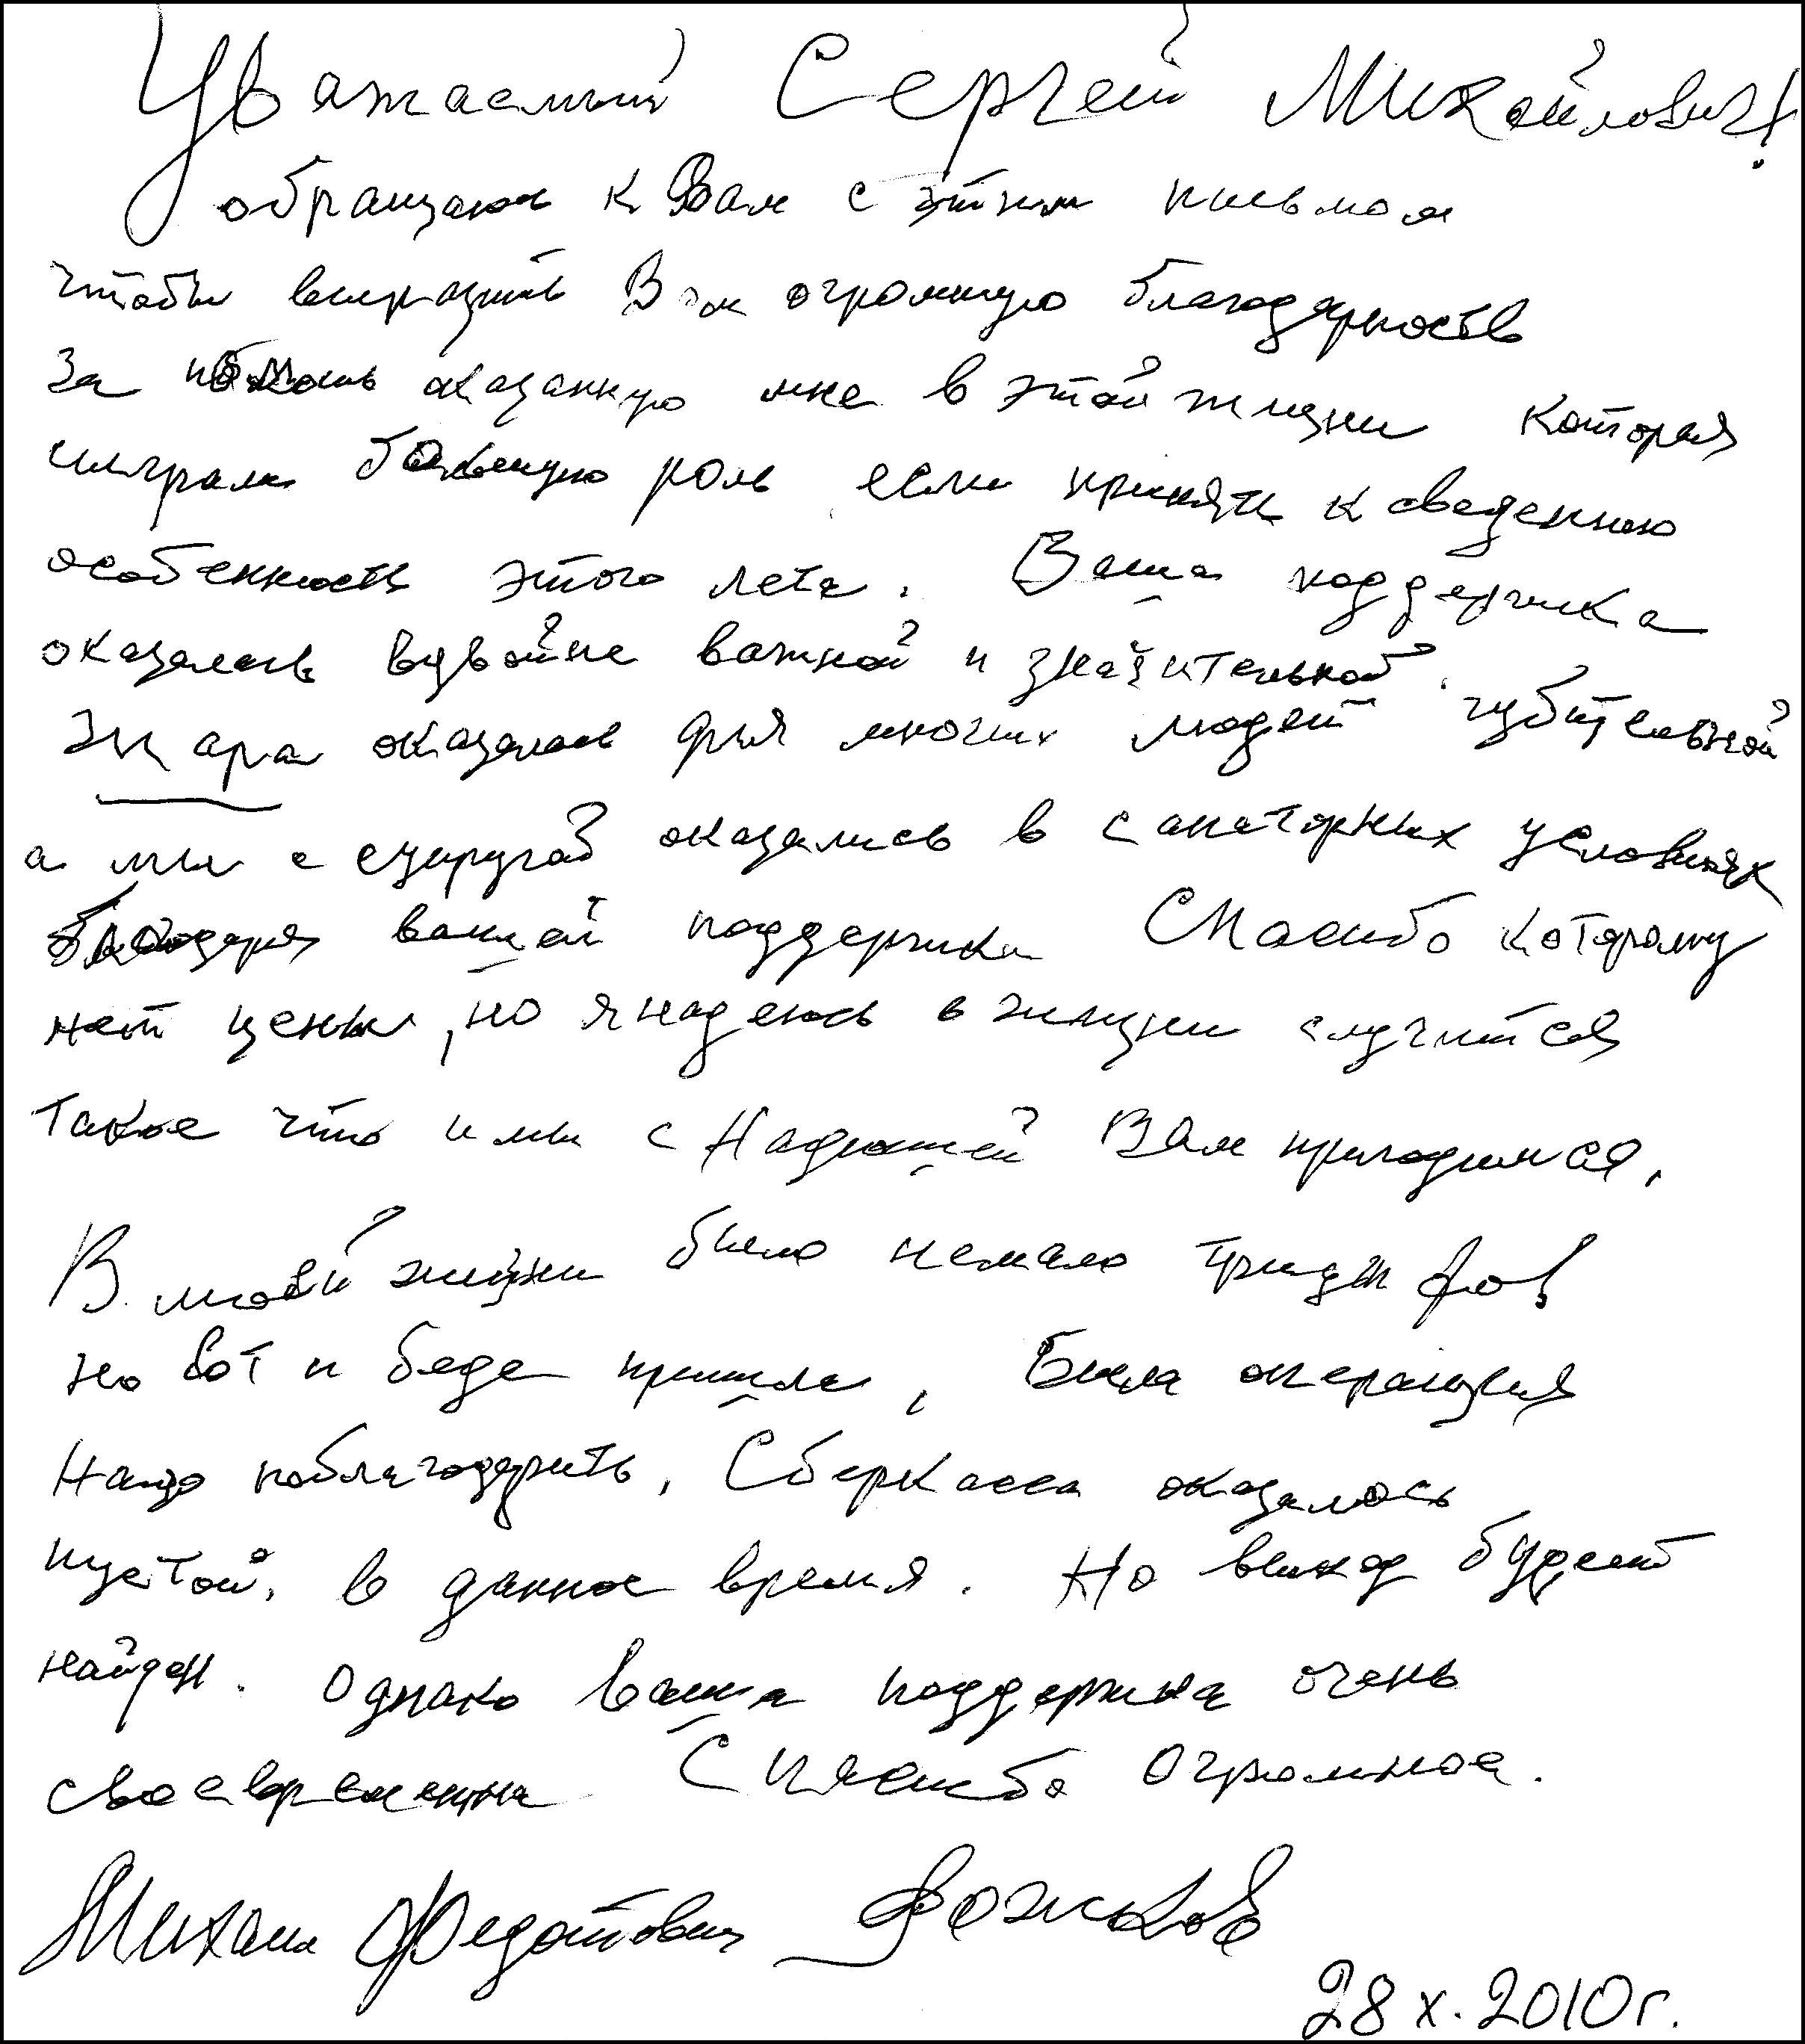 Уважаемый Сергей Михайлович!
обращаюсь к Вам с этим письмом
чтобы выразить Вам огромную благодарность
за помощь оказанную мне в этой жизни которая
играла большую роль если принять к сведению
особенность этого лета. Ваша поддержка
оказалась вдвойне важной и значительной.
Жара оказалась для многих людей губительной
а мы с супругой оказались в санаторных условиях
благодаря вашей поддержки Спасибо которому
нет цены, но я надеюсь в жизни случится
такое что и мы с Надюшей Вам пригодимся.
В моей жизни было немало триумфов
но вот и беда пришла, Была операция
Надо поблагодарить. Сберкасса оказалось
пустой, в данное время. Но выход будет
найден. Однако ваша поддержка очень
своевременна Спасибо Огромное.
Михаил Федотович Рожков
28 X. 2010 г.